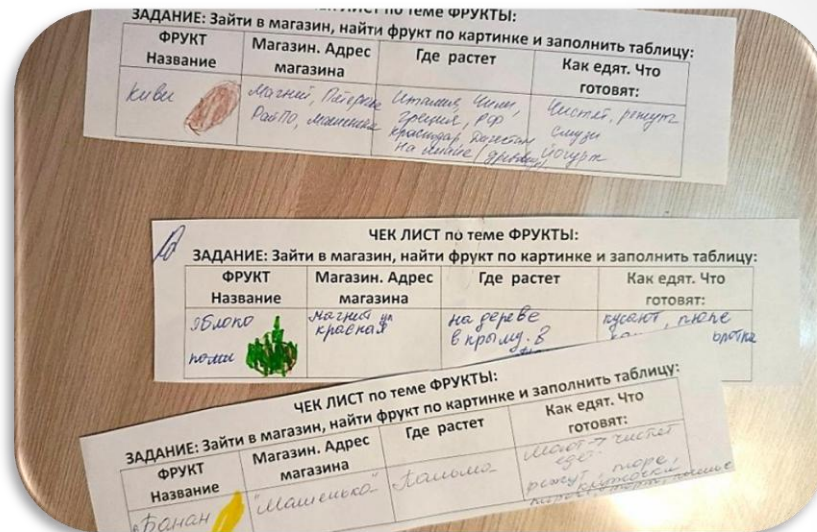 ЧЕК ЛИСТ по теме ФРУКТЫ:
ЗАДАНИЕ: Зайти в магазин, найти фрукт по картинке и заполнить таблицу:
ФРУКТ
Название
Магазин. Адрес
магазина
Где растет
Как едят. Что
готовят:
Киви
Магнит,
РайПО, Машенька
Италия, Чили,
Греция, РФ
Краснодар, Дагестан
на лиане
Чистят, режут
смузи
йогурт
ЧЕК ЛИСТ по теме ФРУКТЫ:
ЗАДАНИЕ: Зайти в магазин, найти фрукт по картинке и заполнить таблицу:
ФРУКТ
Название
Магазин. Адрес
магазина
Где растет
Как едят. Что
готовят:
яблоко
магнит ул
красная
на дереве
в крыму. В
кусают, пюре
ЧЕК ЛИСТ по теме ФРУКТЫ:
ЗАДАНИЕ: Зайти в магазин, найти фрукт по картинке и заполнить таблицу:
ФРУКТ
Название
Магазин. Адрес
магазина
Где растет
Как едят. Что
готовят:
Банан
"Машенька"
Пальма
Моют → чистят
едят
режут, пюре,